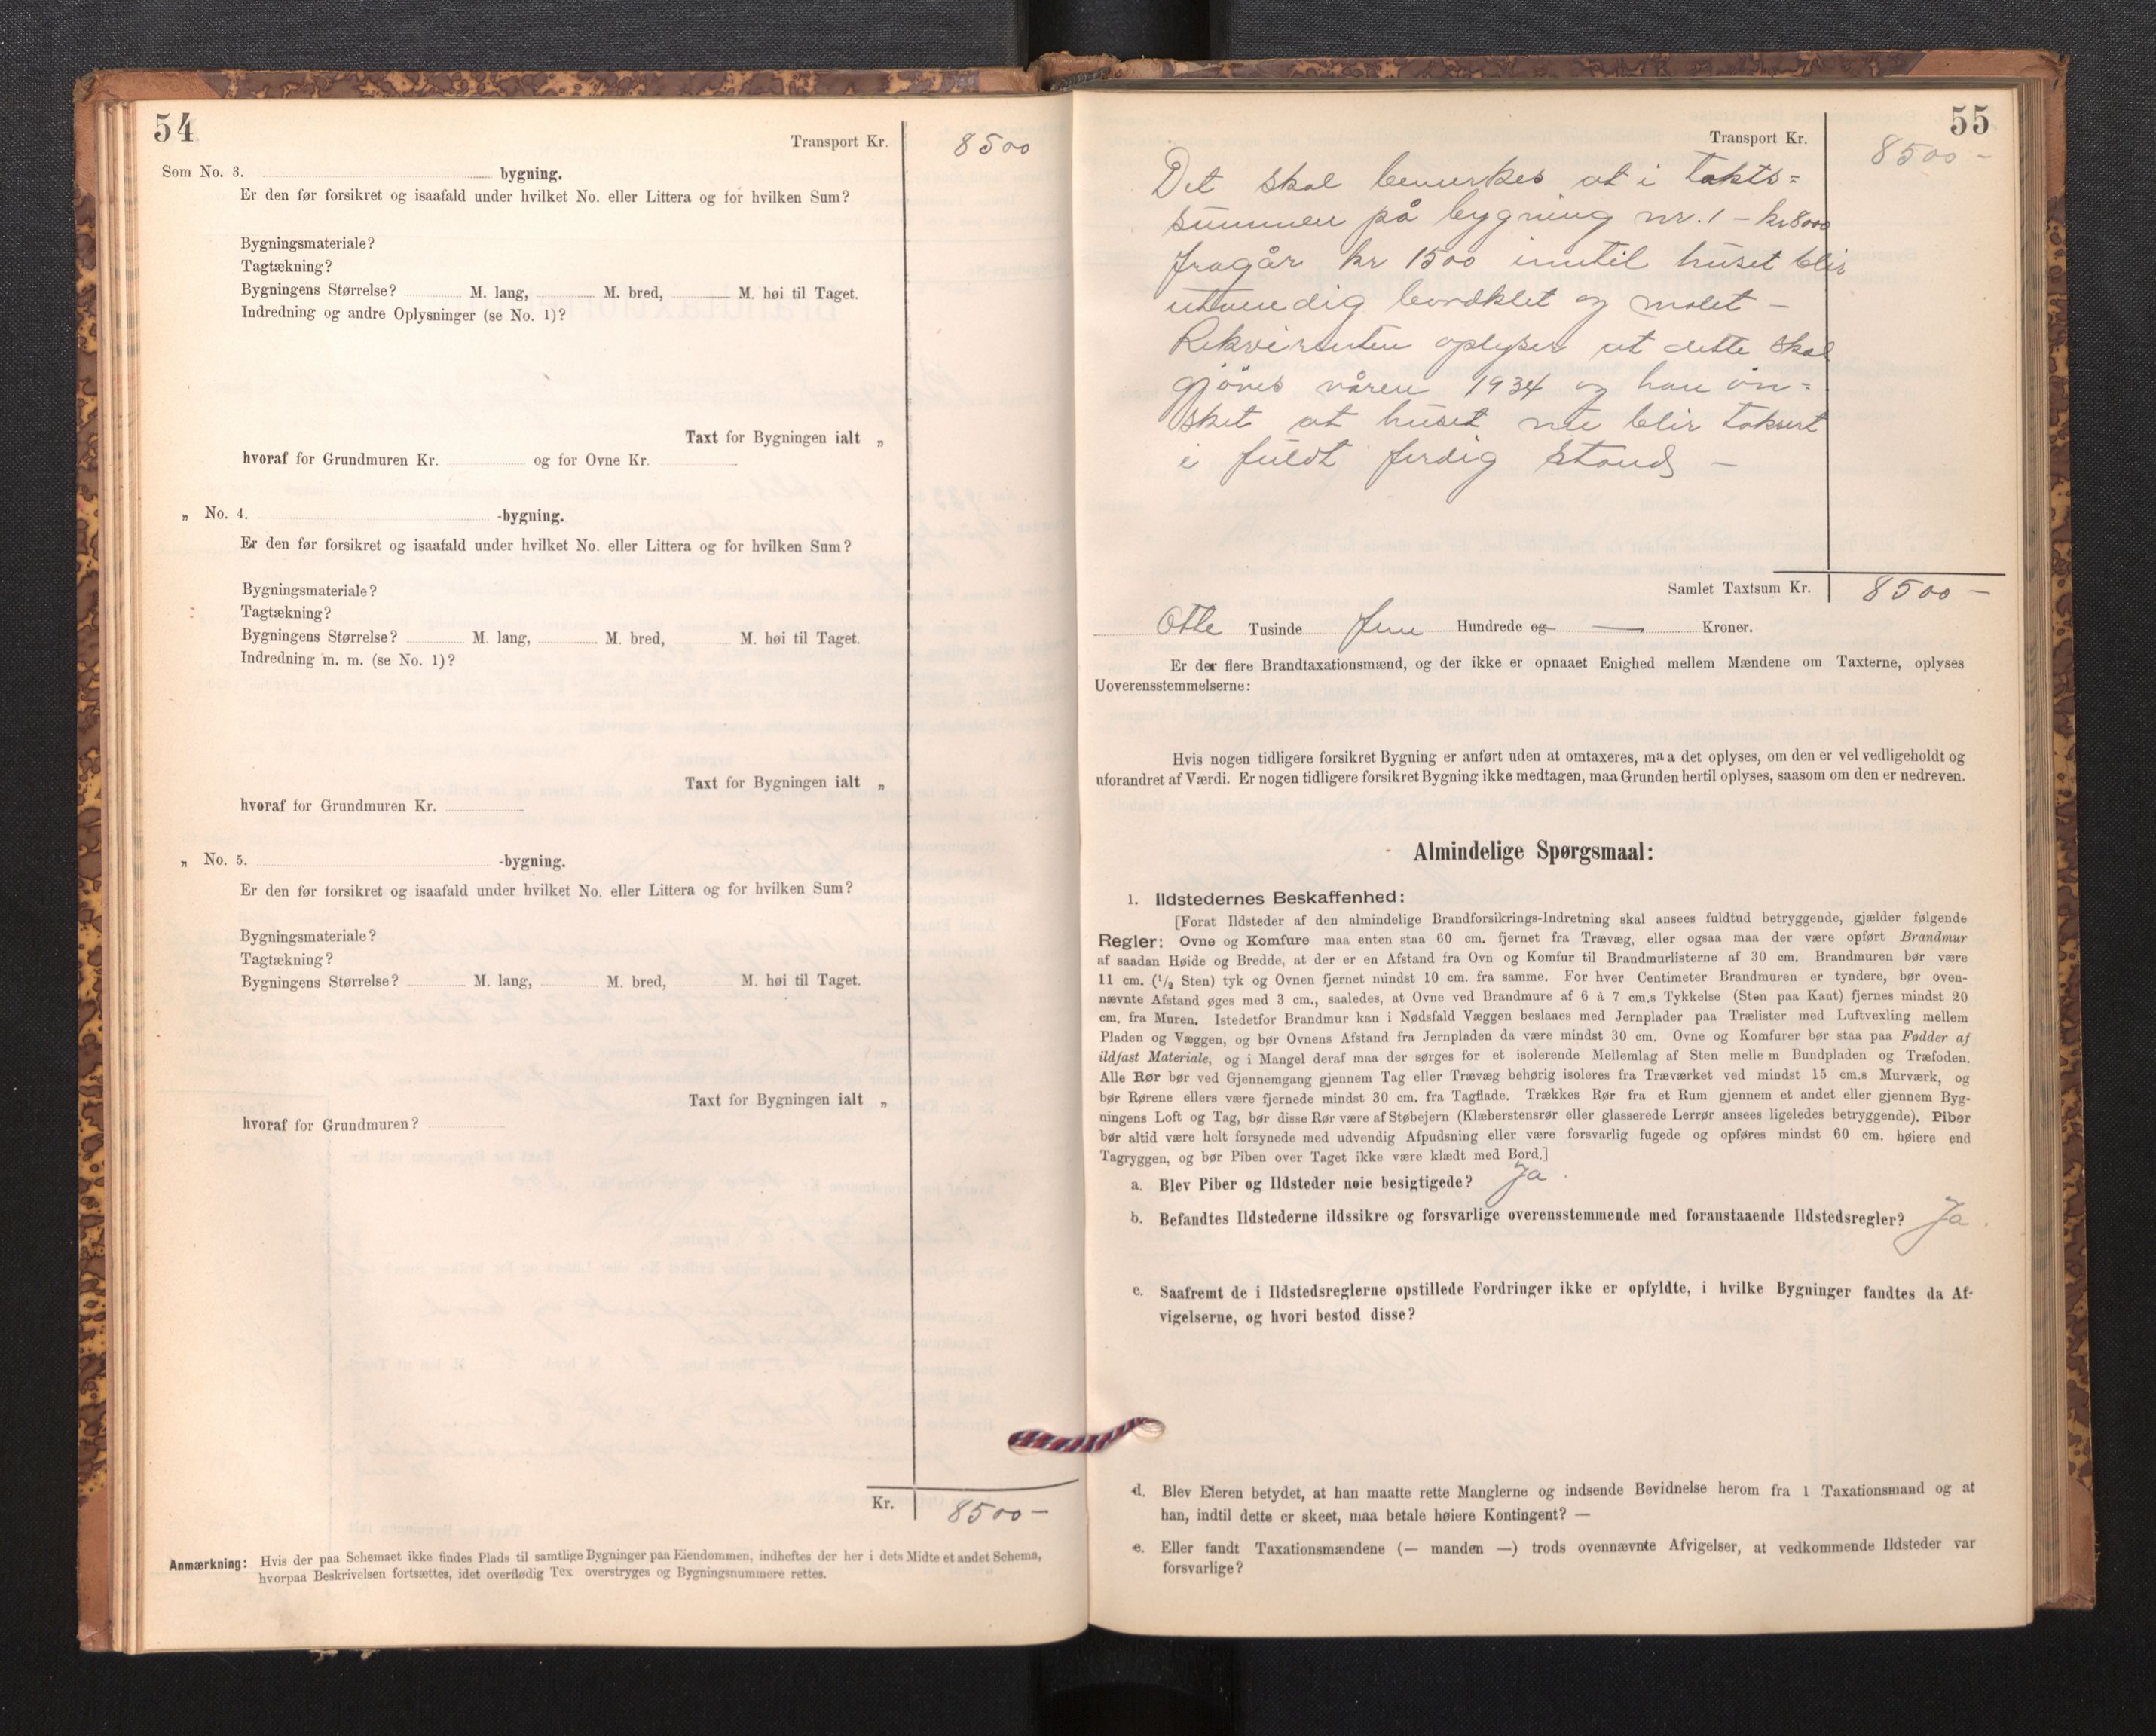 54
Transport Kr. 8500
Som No. 3. bygning.
Er den før forsikret og isaafald under hvilket No. eller Littera og for hvilken Sum?
Bygningsmateriale?
Tagtækning?
Bygningens Størrelse? M. lang, M. bred, M. høi til Taget.
Indredning og andre Oplysninger (se No. 1)?
Taxt for Bygningen ialt „
hvoraf for Grundmuren Kr. og for Ovne Kr.
„ No. 4. -bygning.
Er den før forsikret og isaafald under hvilket No. eller Littera og for hvilken Sum?
Bygningsmateriale?
Tagtækning?
Bygningens Størrelse? M. lang, M. bred, M. høi til Taget.
Indredning m. m. (se No. 1)?
Taxt for Bygningen ialt „
hvoraf for Grundmuren Kr.
„ No. 5. -bygning.
Er den før forsikret og isaafald under hvilket No. eller Littera og for hvilken Sum?
Bygningsmateriale?
Tagtækning?
Bygningens Størrelse? M. lang, M. bred, M. høi til Taget.
Taxt for Bygningen ialt „
hvoraf for Grundmuren?
Kr. 8500 —
Anmærkning: Hvis der paa Schemaet ikke findes Plads til samtlige Bygninger paa Eiendommen, indheftes der her i dets Midte et andet Schema,
hvorpaa Beskrivelsen fortsættes, idet overflødig Tex overstryges og Bygningsnummere rettes.
55
Transport Kr. 8500 —
Det skal bemerkes at i takts=
summen på bygning nr. 1 — kr 8000
fragår kr 1500 inntil huset blir
utvendig bordklet og malet —
Rekvirenten oplyser at dette skal
gjøres våren 1934 og han øn=
sket at huset nu blir taksert
i fuldt ferdig stand —
Samlet Taxtsum Kr. 8500 —
Otte Tusinde fem Hundrede og — Kroner.
Er der flere Brandtaxationsmænd, og der ikke er opnaaet Enighed mellem Mændene om Taxterne, oplyses
Uoverensstemmelserne:
Hvis nogen tidligere forsikret Bygning er anført uden at omtaxeres, maa det oplyses, om den er vel vedligeholdt og
uforandret af Værdi. Er nogen tidligere forsikret Bygning ikke medtagen, maa Grunden hertil oplyses, saasom om den er nedreven.
Almindelige Spørgsmaal:
1. Ildstedernes Beskaffenhed:
[Forat Ildsteder af den almindelige Brandforsikrings-Indretning skal ansees fuldtud betryggende, gjælder følgende
Regler: Ovne og Komfure maa enten staa 60 cm. fjernet fra Trævæg, eller ogsaa maa der være opført Brandmur
af saadan Høide og Bredde, at der er en Afstand fra Ovn og Komfur til Brandmurlisterne af 30 cm. Brandmuren bør være
11 cm. (1/2 Sten) tyk og Ovnen fjernet mindst 10 cm. fra samme. For hver Centimeter Brandmuren er tyndere, bør oven-
nævnte Afstand øges med 3 cm., saaledes, at Ovne ved Brandmure af 6 à 7 cm.s Tykkelse (Sten paa Kant) fjernes mindst 20
cm. fra Muren. Istedetfor Brandmur kan i Nødsfald Væggen beslaaes med Jernplader paa Trælister med Luftvexling mellem
Pladen og Væggen, og bør Ovnens Afstand fra Jernpladen da være mindst 30 cm. Ovne og Komfurer bør staa paa Fødder af
ildfast Materiale, og i Mangel deraf maa der sørges for et isolerende Mellemlag af Sten mellem Bundpladen og Træfoden.
Alle Rør bør ved Gjennemgang gjennem Tag eller Trævæg behørig isoleres fra Træværket ved mindst 15 cm.s Murværk, og
bør Rørene ellers være fjernede mindst 30 cm. fra Tagflade. Trækkes Rør fra et Rum gjennem et andet eller gjennem Byg-
ningens Loft og Tag, bør disse Rør være af Støbejern (Klæberstensrør eller glasserede Lerrør ansees ligeledes betryggende). Piber
bør altid være helt forsynede med udvendig Afpudsning eller være forsvarlig fugede og opføres mindst 60 cm. høiere end
Tagryggen, og bør Piben over Taget ikke være klædt med Bord.]
a. Blev Piber og Ildsteder nøie besigtigede? Ja.
b. Befandtes Ildstederne ildssikre og forsvarlige overensstemmende med foranstaaende Ildstedsregler? Ja.
c. Saafremt de i Ildstedsreglerne opstillede Fordringer ikke er opfyldte, i hvilke Bygninger fandtes da Af-
vigelserne, og hvori bestod disse?
d. Blev Eieren betydet, at han maatte rette Manglerne og indsende Bevidnelse herom fra 1 Taxationsmand og at
han, indtil dette er skeet, maa betale høiere Kontingent? —
e. Eller fandt Taxationsmændene (— manden —) trods ovennævnte Afvigelser, at vedkommende Ildsteder var
forsvarlige?